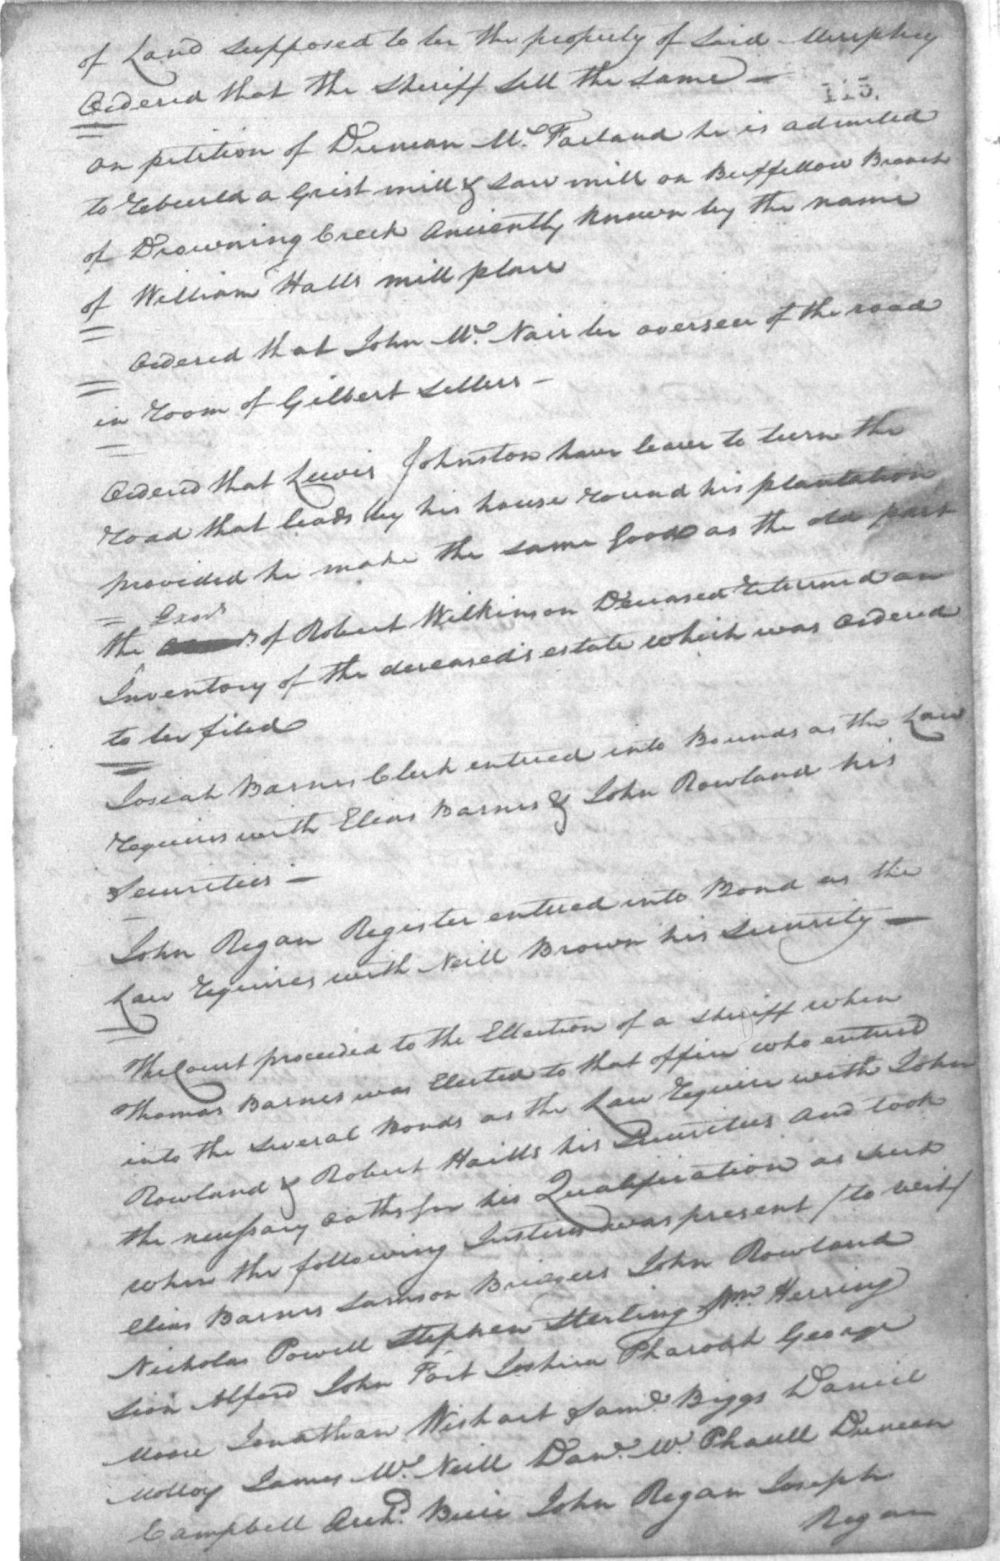 of Land supposed to be the property of said Murphey
Ordered that the Sheriff sell the same —
115.
on petition of Duncan Mc. Farland he is admitted
to Rebuild a Grist mill & Saw mill on Buffellow Branch
of Drowning Creek Anciently known by the name
of William Halls mill place
Ordered that John Mc. Nair be overseer of the road
in room of Gilbert Sellers —
Ordered that Lewis Johnston have leave to turn the
road that leads by his house round his plantation
provided he make the same Good as the old part
Exors
the of Robert Wilkinson Deceased Returned an
Inventory of the deceased's estate which was ordered
to be filed
Josiah Barnes Clerk entered into Bounds as the Law
Requires with Elias Barnes & John Rowland his
Securities —
John Regan Register entered into Bond as the
Law Requires with Neill Brown his Security —
The Court proceeded to the Ellection of a Sheriff when
Thomas Barnes was Elected to that office who entered
into the several Bonds as the Law Require with John
Rowland & Robert Haills his Securities and took
the nessary oaths for his Qualification as such
when the following Justices was present (to wit)
Elias Barnes Samson Bridgers John Rowland
Nicholas Powell Stephen Sterling Wm Herring
Sion Alford John Fort Joshua Pharoah George
Moore Jonathan Wishart Samd. Biggs Daniel
Molloy James Mc. Neill Danl. Mc. Phaull Duncan
Campbell Archd. Buie John Regan Joseph
Regan